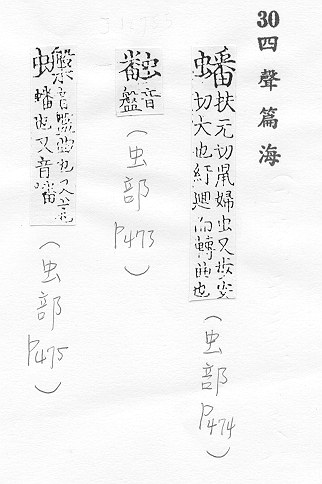 30四聲篇海
蟠扶元切鼠婦虫又步安
切大也紆廻而轉曲也
(虫部
P474)
蟠音
盤
(虫部
P473)
音盤
蟠也又音
(虫部
P475)